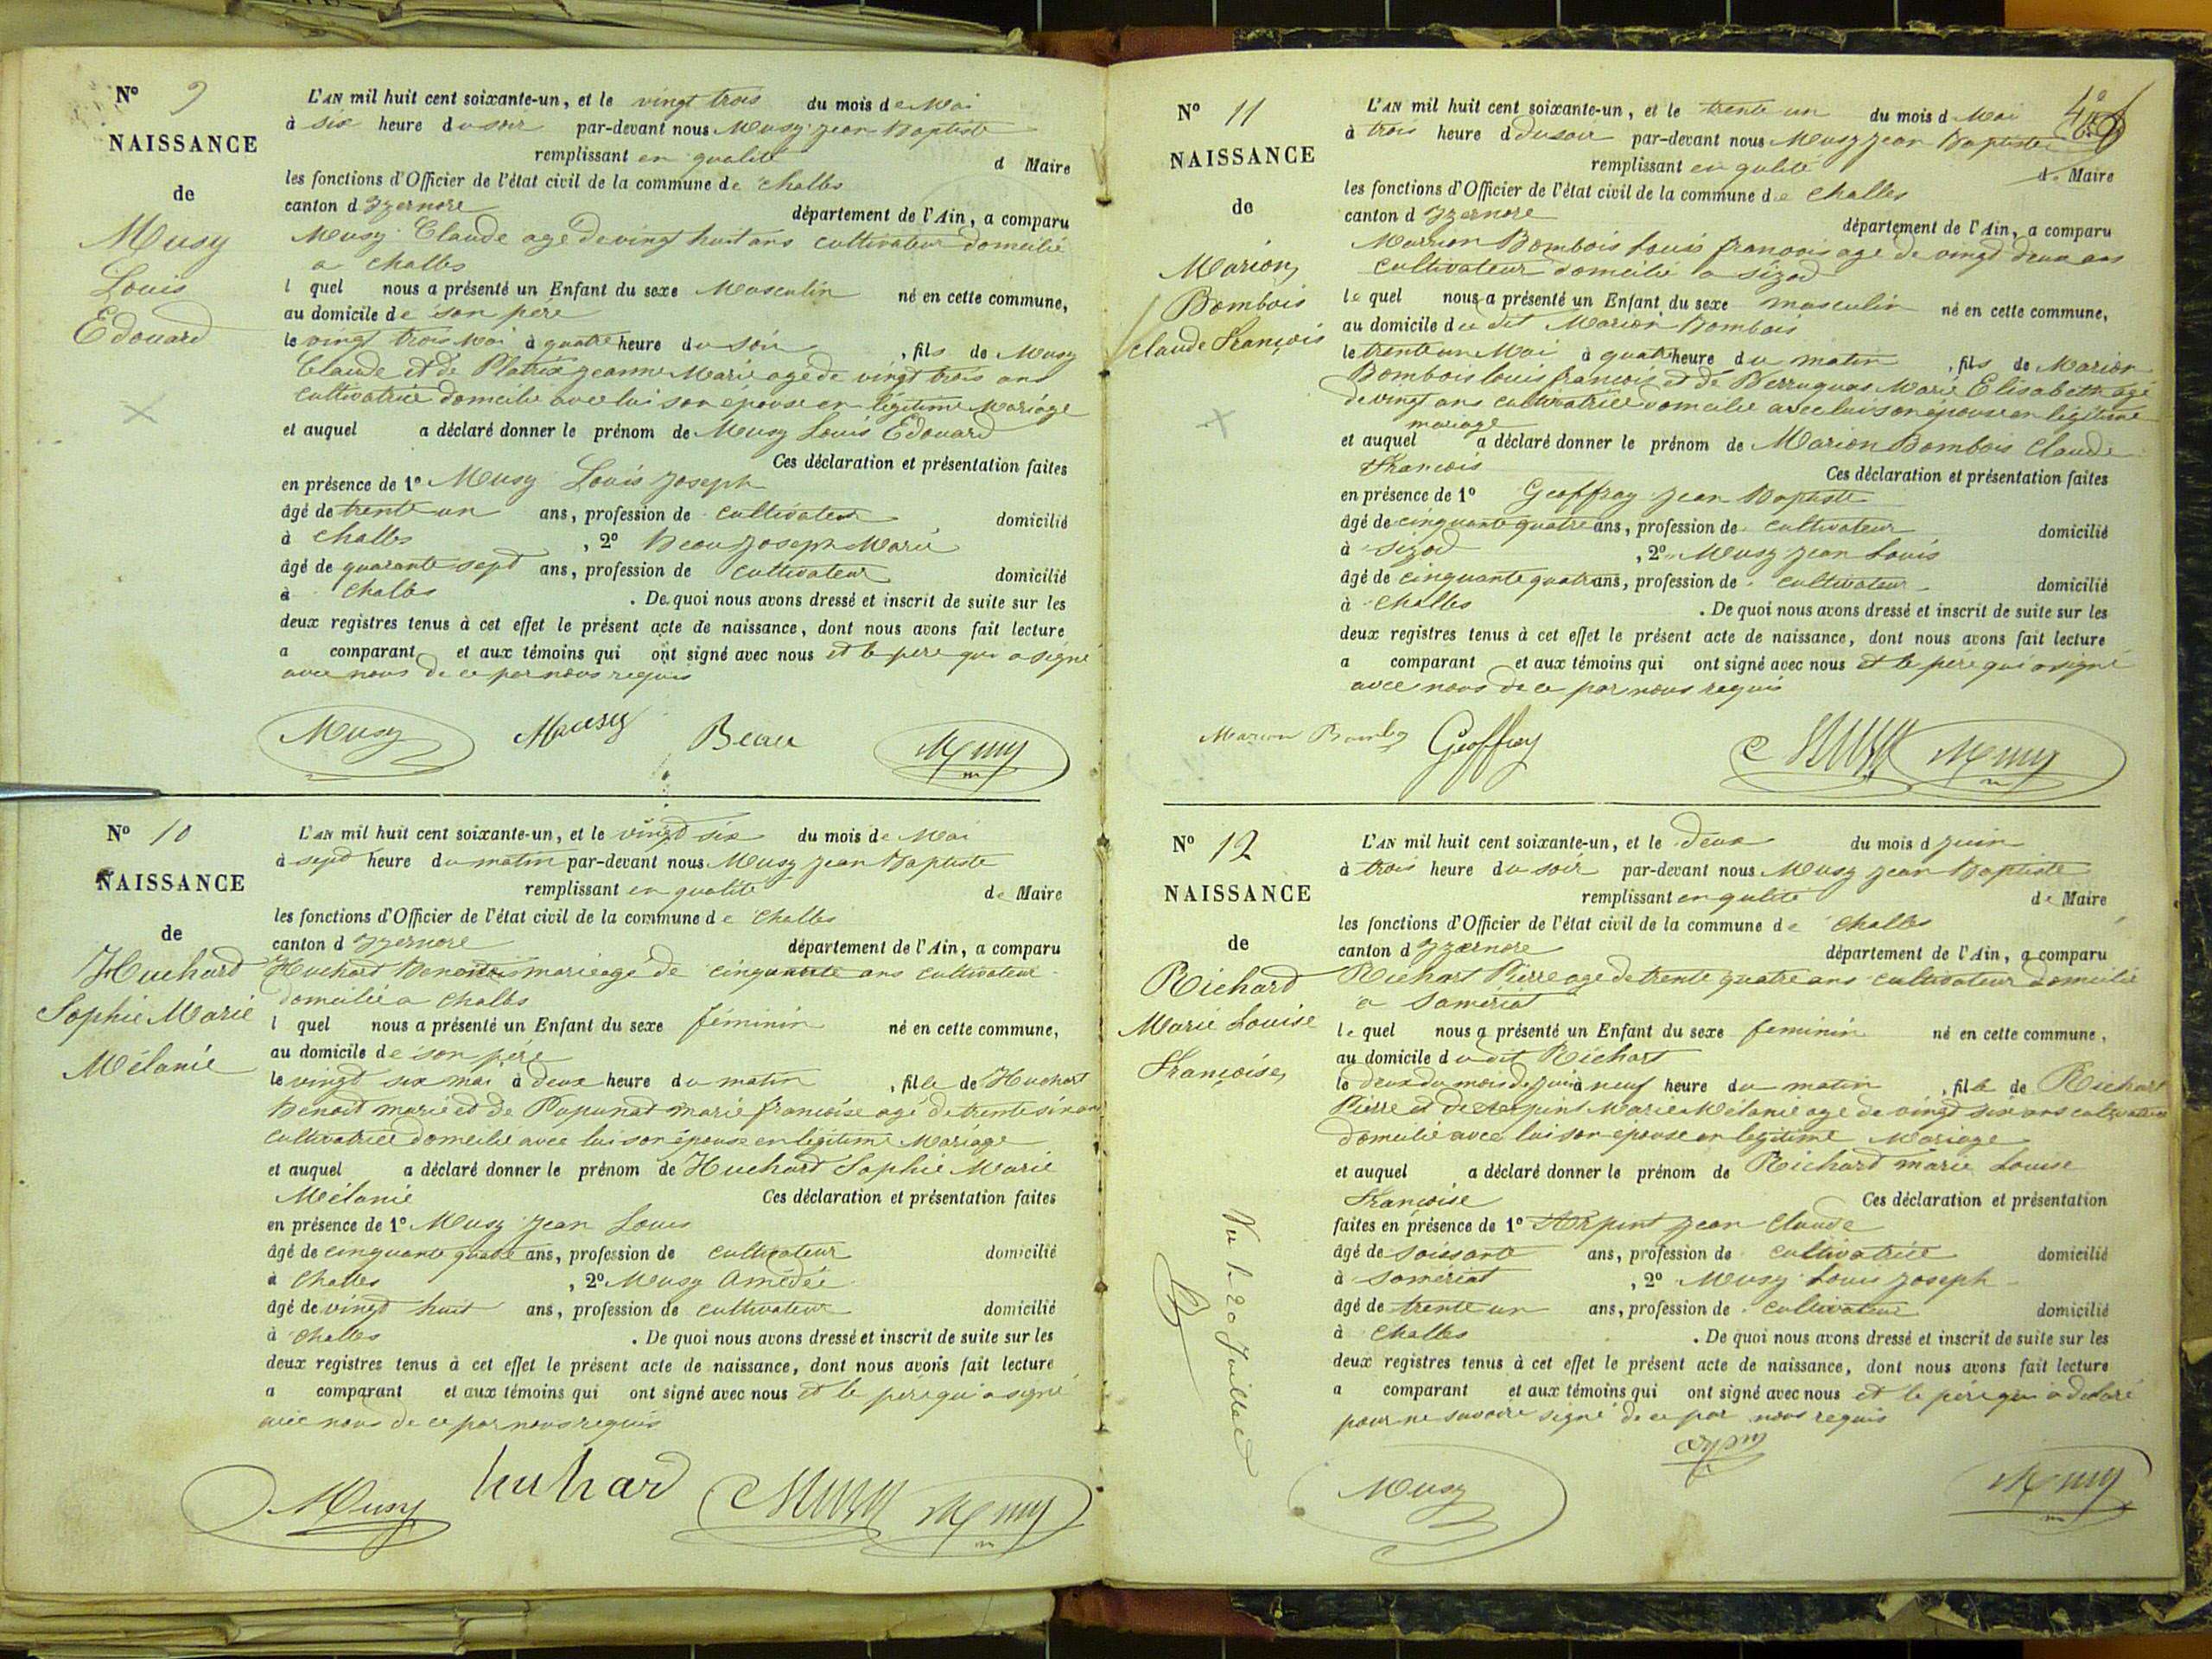 N° 9
NAISSANCE
de
Musy
Louis
Edouard
L'AN mil huit cent soixante-un, et le vingt trois du mois de Mai
à six heure du soir par-devant nous Musy jean Baptiste
remplissant en qualité d Maire
les fonctions d'Officier de l'état civil de la commune de Challes
canton d Yzernore département de l'Ain, a comparu
Musy Claude age de vingt huit ans cultivateur domicilié
a challes
l quel nous a présenté un Enfant du sexe Masculin né en cette commune,
au domicile de son père
le vingt trois Mai à quatre heure du soir , fils de Musy
Claude et de Platrix jeanne Marie age de vingt trois ans
cultivatrice domicilié avec lui son épouse en légitime Mariage
et auquel a déclaré donner le prénom de Musy Louis Edouard
Ces déclaration et présentation faites
en présence de 1° Musy Louis joseph
âgé de trente un ans, profession de cultivateur domicilié
à challes , 2° Beau joseph Marie
âgé de quarante sept ans, profession de cultivateur domicilié
à Challes . De quoi nous avons dressé et inscrit de suite sur les
deux registres tenus à cet effet le présent acte de naissance, dont nous avons fait lecture
a comparant et aux témoins qui ont signé avec nous et le père qui a signé
avec nous de ce par nous requis
Musy Musy Beau Musy
N° 10
NAISSANCE
de
Huchard
Sophie Marie
Mélanie
L'AN mil huit cent soixante-un, et le vingt six du mois de Mai
à sept heure du matin par-devant nous Musy jean Baptiste
remplissant en qualité de Maire
les fonctions d'Officier de l'état civil de la commune de Challes
canton d Yzernore département de l'Ain, a comparu
Huchard Benoit marie age de cinquante ans cultivateur
domicilié a challes
l quel nous a présenté un Enfant du sexe féminin né en cette commune,
au domicile de son père
le vingt six mai à deux heure du matin , fille de Huchart
Benoit marie et de Papunat marie francoise agé de trente six ans
cultivatrice domicilié avec lui son épouse en légitime Mariage
et auquel a déclaré donner le prénom de Huchard Sophie Marie
Mélanie Ces déclaration et présentation faites
en présence de 1° Musy jean Louis
âgé de cinquante quatre ans, profession de cultivateur domicilié
à Challes , 2° Musy Amédée
âgé de vingt huit ans, profession de cultivateur domicilié
à challes . De quoi nous avons dressé et inscrit de suite sur les
deux registres tenus à cet effet le présent acte de naissance, dont nous avons fait lecture
a comparant et aux témoins qui ont signé avec nous et le père qui a signé
avec nous de ce par nous requis
Musy huhard Musy Musy
N° 11
NAISSANCE
de
Marion
Bombois
claude François
L'AN mil huit cent soixante-un, et le trente un du mois d Mai
à trois heure d du soir par-devant nous Musy jean Baptiste
remplissant en qulité de Maire
les fonctions d'Officier de l'état civil de la commune de Challes
canton d Yzernore département de l'Ain, a comparu
Marrion Bombois Louis francois age de vingt deux ans
cultivateur domicilié a sizod
le quel nous a présenté un Enfant du sexe masculin né en cette commune,
au domicile du dit Marion Bombois
le trente un Mai à quatre heure du matin , fils de Marion
Bombois louis francois et de Berruquas Marie Elisabeth agé
de vingt ans cultivatrice domicilié avec lui son épouse en légitime
mariage
et auquel a déclaré donner le prénom de Marion Bombois Claude
Francois Ces déclaration et présentation faites
en présence de 1° Geoffray jean Baptiste
âgé de cinquante quatre ans, profession de cultivateur domicilié
à sizod , 2° Musy jean Louis
âgé de cinquante quatr ans, profession de cultivateur domicilié
à Challes . De quoi nous avons dressé et inscrit de suite sur les
deux registres tenus à cet effet le présent acte de naissance, dont nous avons fait lecture
a comparant et aux témoins qui ont signé avec nous et le père qui a signé
avec nous de ce par nous requis
Marion Bombo Geoffray Musy Musy
N° 12
NAISSANCE
de
Richard
Marie Louise
Françoise
L'AN mil huit cent soixante-un, et le deux du mois d juin
à trois heure du soir par-devant nous Musy jean Baptiste
remplissant en qulité de Maire
les fonctions d'Officier de l'état civil de la commune de Challes
canton d Yzernore département de l'Ain, a comparu
Richart Pierre age de trente quatre ans cultivateur domicilié
a Samériat
le quel nous a présenté un Enfant du sexe feminin né en cette commune,
au domicile du dit Richart
le deux du mois de juin à neuf heure du matin , fille de Richart
Pierre et de Marie Mélanie age de vingt six ans cultivatrice
domicilié avec lui son épouse en légitime Mariage
et auquel a déclaré donner le prénom de Richard marie Louise
Francoise Ces déclaration et présentation
faites en présence de 1° jean Claude
âgé de soissante ans, profession de cultivatrice domicilié
à samériat , 2° Musy Louis joseph
âgé de trente un ans, profession de cultivateur domicilié
à Challes . De quoi nous avons dressé et inscrit de suite sur les
deux registres tenus à cet effet le présent acte de naissance, dont nous avons fait lecture
a comparant et aux témoins qui ont signé avec nous et le père qui a déclaré
pour ne savoire signé de ce par nous requis
Musy Musy
Vu le 20 Juillet